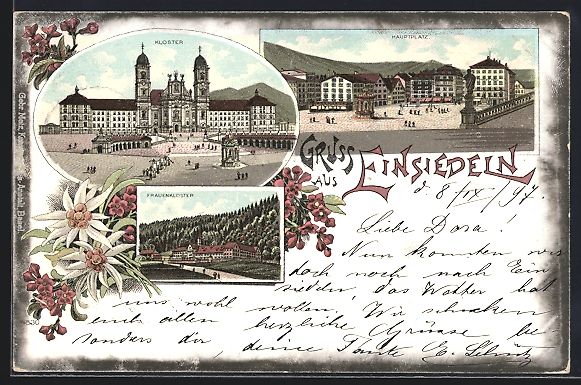 KLOSTER
HAUPTPLATZ
GRUSS
AUS
EINSIEDELN
FRAUENKLOSTER
d. 8/IX/97.
Liebe Dora!
Nun konnten wir
doch noch nach Ein
siedeln, das Wetter hat
uns wohl wollen. Wir schicken
euch allen herzliche Grüsse be
sonders dir, deine Tante E.
Gebr. Metz, Basel